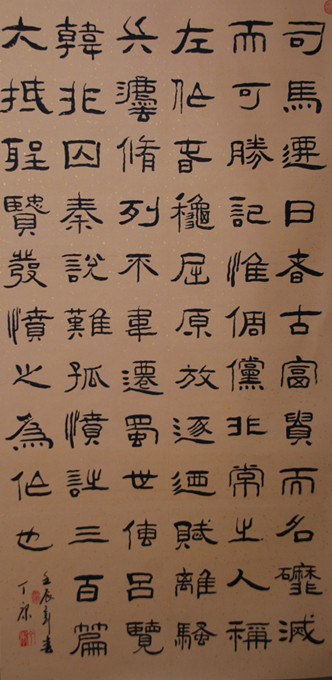 司馬遷曰古富貴而名磨滅
而可勝記惟倜儻非常之人稱
左作春穐屈原放逐廼賦離騷
兵灋脩列不韋遷蜀世傳呂覽
韓非囚秦說難孤憤詩三百篇
大抵聖賢發憤之為作也
壬辰年春
丁